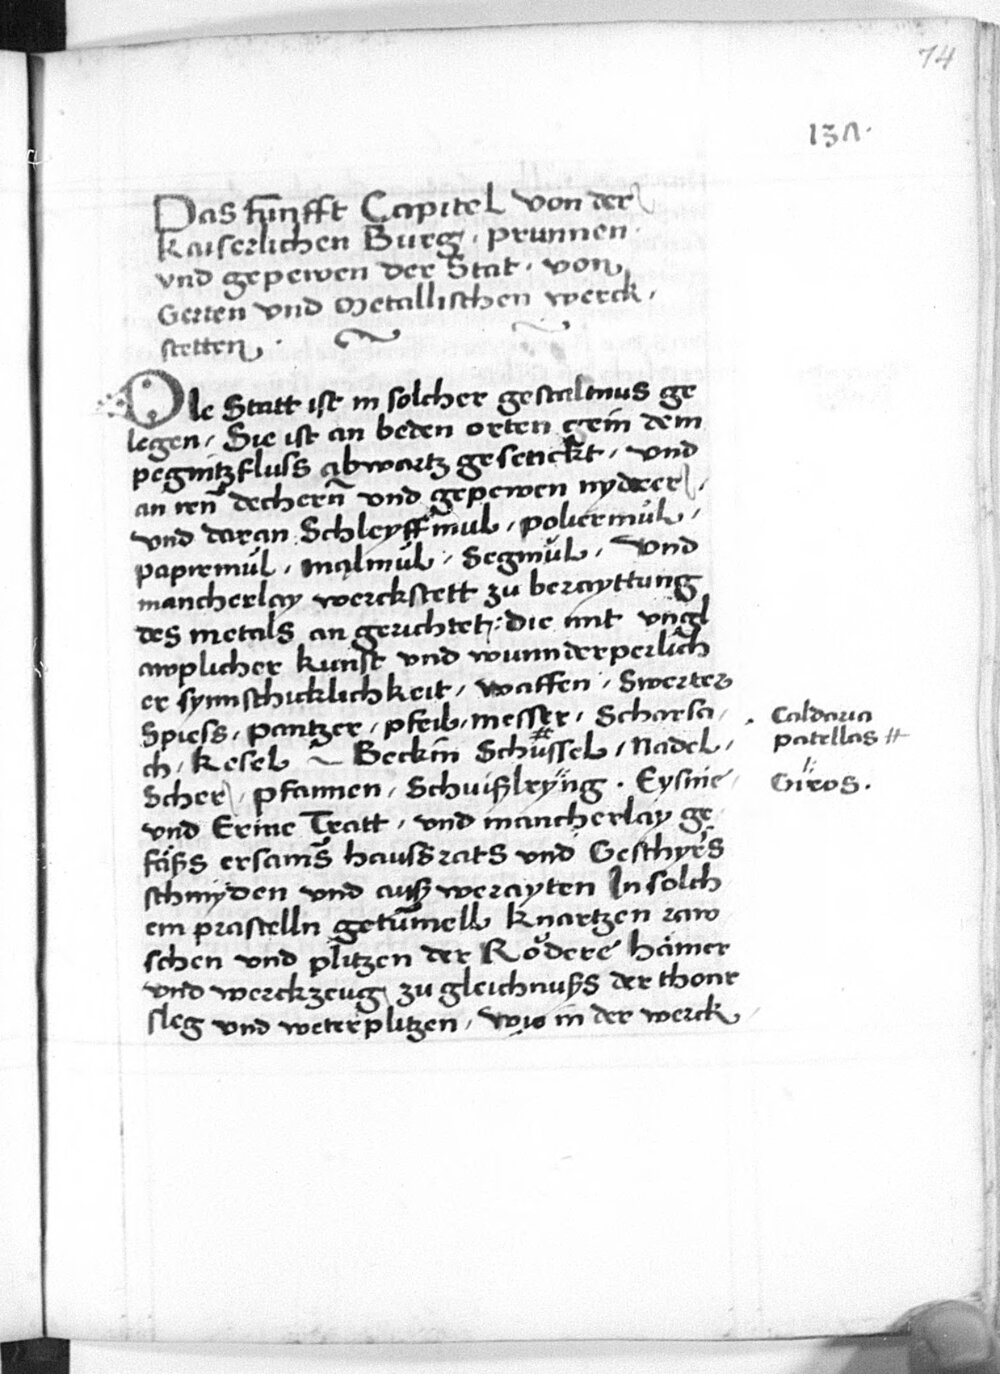 74
137.
Das funfft Capitel von der
kaiserlichen Burg, prunnen.
vnd gepewen der Stat, von
Gerten vnd Metallischen werck,
stetten.
Die Statt ist in solcher gestaltnus ge
legen, Sie ist an beden orten gein dem
pegnitzfluss abwartz gesenckt, vnd
an iren dechern vnd gepewen nydrer,
vnd daran Schleyffmul, poliermul,
papirmul, malmul, Segmul, Vnd
mancherlay werckstett zu berayttung
des metals an gerichtet: die mit vngl
awplicher kunst vnd wunnderperlich
er synnschicklichkeit, waffen, Swerter
Spiess, pantzer, pfeil, messer, Scharsa,
ch, kesel ~ Beckin Schüssel, Nadel,
Scher, pfannen, Schuißlryng. Eysine
vnd Erine Tratt, vnd mancherlay ge
fäßs ersams haussrats vnd Geschyrs
schmyden vnd auß werayten In solch
em prastelln getumell knartzen raw
schen vnd plitzen der Rodere hämer
vnd werckzeug zu gleichnußs der thonr
sleg vnd weterplitzen, Wio in der werck
Caldaria
patellas #
Giros.